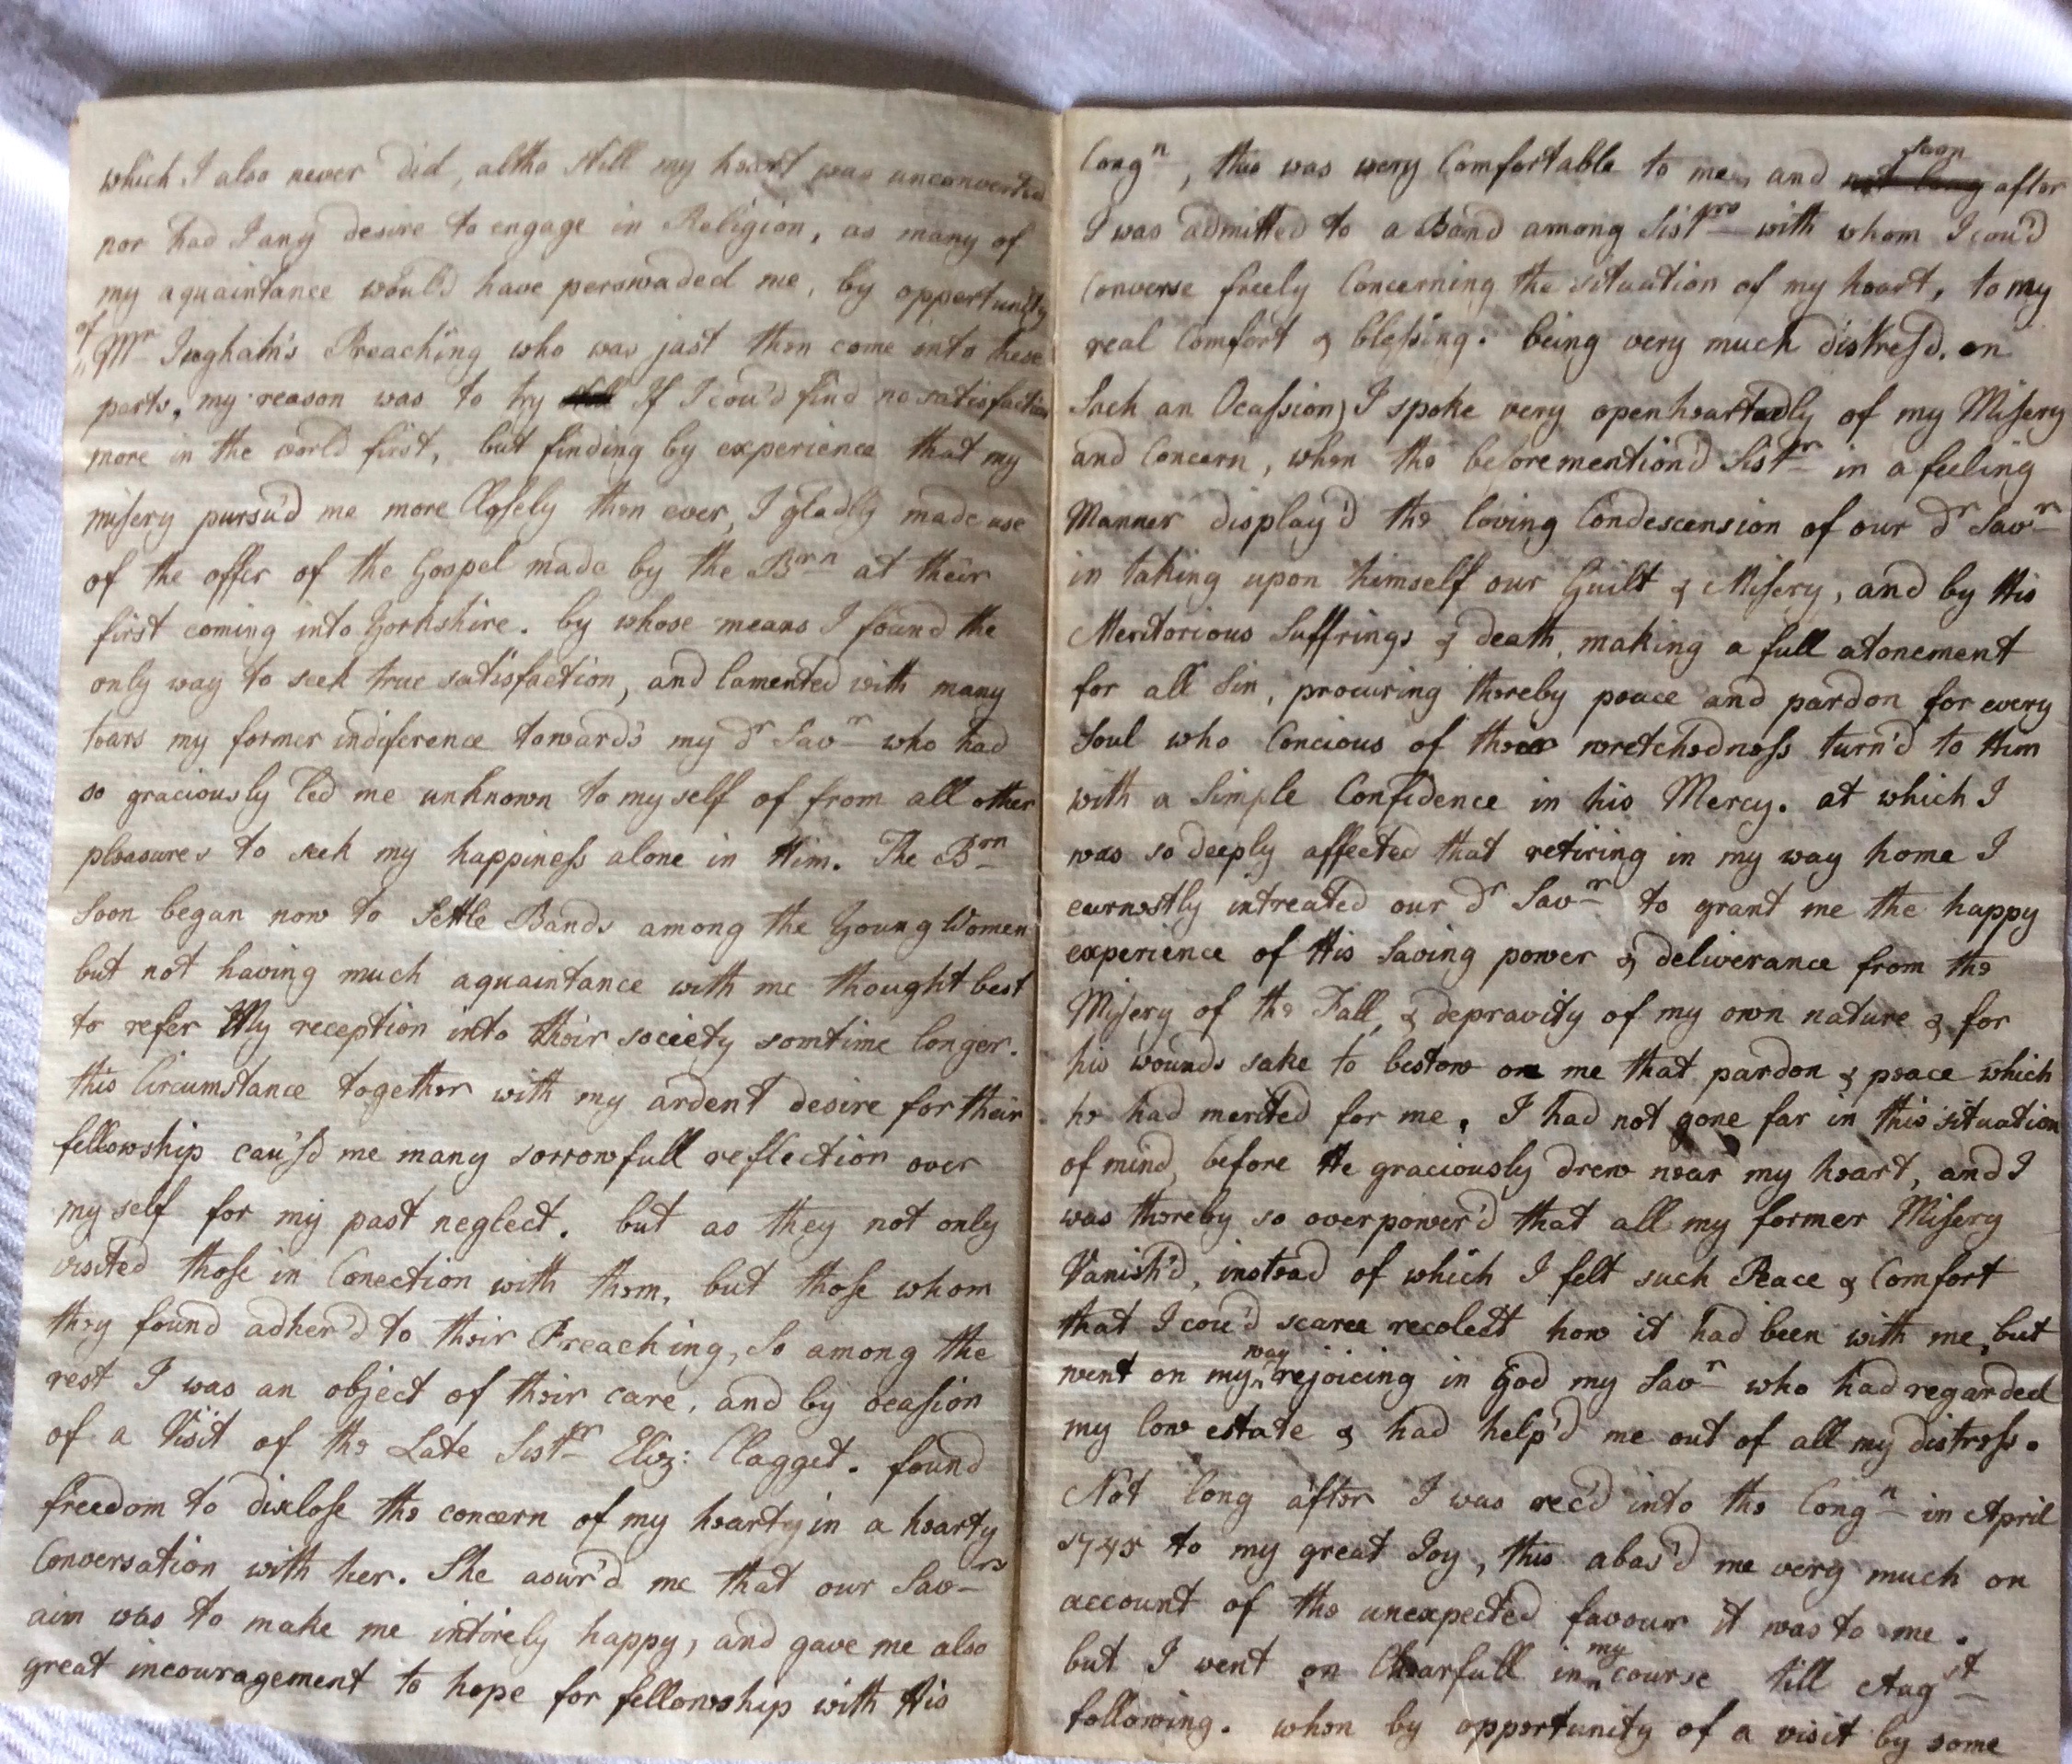 which I also never did, altho still my heart was unconverted
nor had I any desire to engage in Religion, as many of
my aquaintance would have perswaded me, by oppertunity
of Mr Inghah's Preaching who was just then come into these
parts, my reason was to try If I cou'd find no satisfaction
more in the world first, but finding by experience that my
misery pursu'd me more Closely then ever, I gladly made use
of the offer of the Gospel made by the Brn at their
first coming into Yorkshire. by whose means I found the
only way to seek true satisfaction, and lamented with many
tears my former indiference towards my dr Savr who had
so graciously led me unknown to my self of from all other
pleasures to seek my happiness alone in Him. The Brn
soon began now to Settle Bands among the Young Women
but not having much aquaintance with me thought best
to refer My reception into their society somtime longer.
this Circumstance together with my ardent desire for their
fellowship cau'sd me many sorrowfull reflection over
my self for my past neglect. but as they not only
visited those in Conection with them, but those whom
they found adher'd to their Preaching, So among the
rest I was an object of their care, and by ocasion
of a Visit of the Late Sistr Eliz: Clagget. found
freedom to disclose the concern of my hearty in a hearty
Conversation with her. She asur'd me that our Savrs
aim was to make me intirely happy, and gave me also
great incouragement to hope for fellowship with His
Congn, this was very Comfortable to me, and not long soon after
I was admitted to a Band among Sistrs with whom I cou'd
Converse freely Concerning the situation of my heart, to my
real Comfort & blessing. being very much distress'd. on
Such an Ocassion, I spoke very openheartedly of my Misery
and Concern, when the beforemention'd Sistr in a feeling
Manner display'd the loving Condescension of our dr Savr
in taking upon himself our Guilt & Misery, and by His
Meritorious Suffrings & death, making a full atonement
for all Sin, procuring thereby peace and pardon for every
Soul who Concious of their wretchedness turn'd to Him
with a Simple Confidence in his Mercy. at which I
was so deeply affected that retiring in my way home I
earnestly intreated our dr Savr to grant me the happy
experience of His Saving power & deliverance from the
Misery of the Fall, & depravity of my own nature & for
his wounds sake to bestow on me that pardon & peace which
he had merited for me. I had not gone far in this situation
of mind, before He graciously drew near my heart, and I
was thereby so overpower'd that all my former Misery
Vanish'd, instead of which I felt such Peace & Comfort
that I cou'd scarce recolect how it had been with me, but
went on my way rejoicing in God my Savr who had regarded
my low estate & had help'd me out of all my distress.
Not long after I was rec'd into the Congn in April
1745 to my great Joy, this abas'd me very much on
account of the unexpected favour it was to me.
but I went on Chearfull in my course till Augst
following. when by opportunity of a visit by some